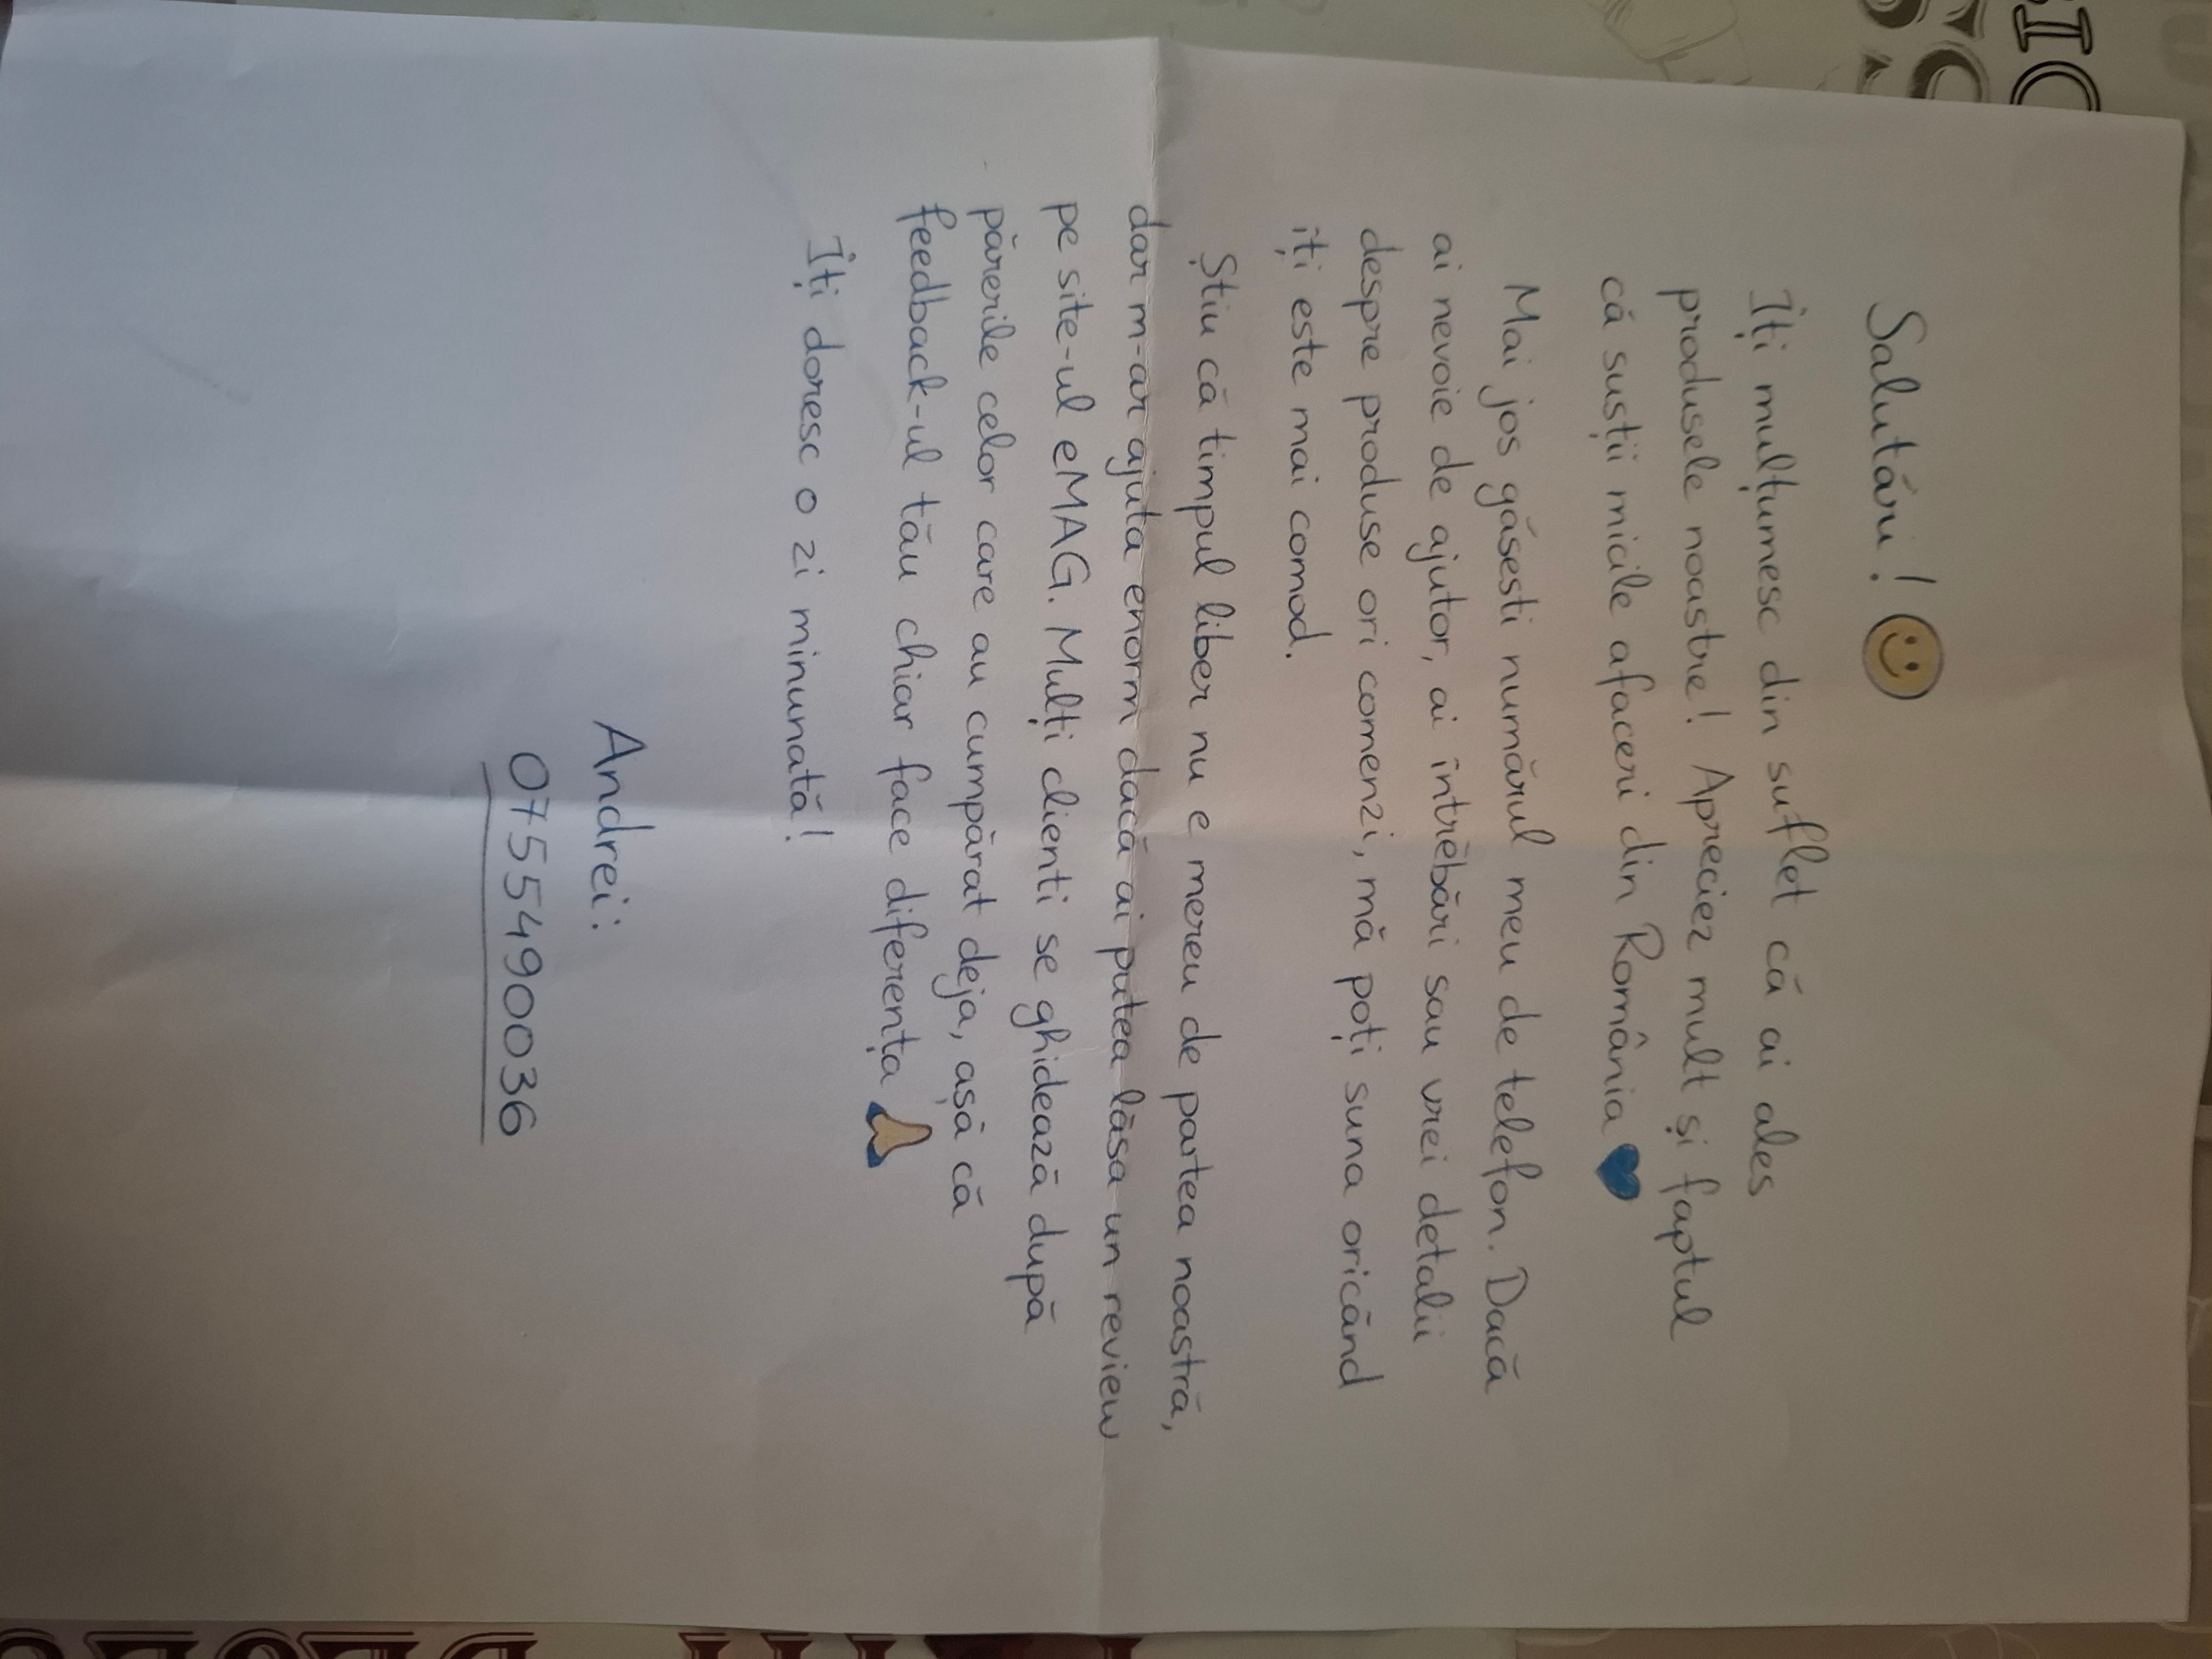 Salutări! 🙂
Îți mulțumesc din suflet că ai ales
produsele noastre! Apreciez mult și faptul
că susții micile afaceri din România 💙
Mai jos găsesti numărul meu de telefon. Dacă
ai nevoie de ajutor, ai întrebări sau vrei detalii
despre produse ori comenzi, mă poți suna oricând
îți este mai comod.
Știu că timpul liber nu e mereu de partea noastră,
dar m-ar ajuta enorm dacă ai putea lăsa un review
pe site-ul eMAG. Mulți clienti se ghidează după
părerile celor care au cumpărat deja, așă că
feedback-ul tău chiar face diferența 🙏
Îți doresc o zi minunată!
Andrei:
0755490036